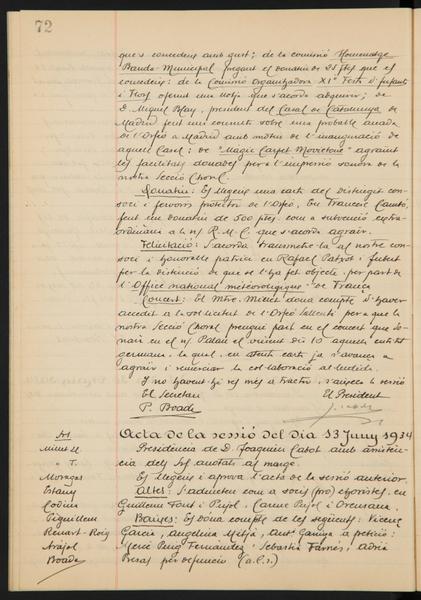 72
que's concedeix amb gust; de la comissió Homenatge
Banda Municipal pregant el donatiu de 25 ptes que es
concedeix; de la Comissió organitzadora XIª Festa d'Infants
i Flors oferint una llotja que s'acorda adquirir; de
D. Miquel Blay, president del Casal de Catalunya de
Madrid fent una consulta sobre una probable anada
de l'Orfeó a Madrid amb motiu de l'inauguració de
aquell Casal; de "Magic Carpet Movietone" agraint
les facilitats donades per a l'impressió sonora de la
nostra Secció Choral.
Donatiu: Es llegeix una carta del distingit con-
soci i fervorós protector de l'Orfeó, En Francesc Cambó,
fent un donatiu de 500 ptes. com a subvenció extra-
ordinaria a la n/ R.M.C. que s'acorda agrair.
Felicitació: S'acorda transmetre-la al nostre con-
soci i honorable patrici en Rafael Patxot i Jubert
per la distinció de que se l'ha fet objecte, per part de
l'"Office national météorologique" de França
Concert: El Mtre. Millet dona compte d'haver
accedit a la sol·licitut de l'Orfeó per a que la
nostra Secció Choral prengui part en el concert que do-
narà en el n/ Palau el vinent dia 10 aquella entitat
germana, la qual, en atenta carta ja s'avança a
agrair i remerciar la col·laboració al·ludida.
I no havent-hi res més a tractar, s'aixeca la sessió
El Secretari El President
P. Boada
Acta de la sessió del dia 13 Juny 1934
Srs
Millet Ll.
" F.
Moragas
Estany
Codina
Piguillem
Renart-Roig
Arajol
Boada
Presidencia de D. Joaquim Cabot amb assistèn-
cia dels Srs. anotats al marge.
Es llegeix i aprova l'acta de la sessió anterior.
Altes: S'admeten com a socis (pro) choristes, en
Guillem Font i Pujol, Carme Pujol i
Baixes: Es dóna compte de les següents: Vicenç
Garcia, Angelina Mitjà, Antª a petició;
Mercè Puig Fernández, Sebastià Farnés, Adrià
Bresas per defunció (a.C.s.)